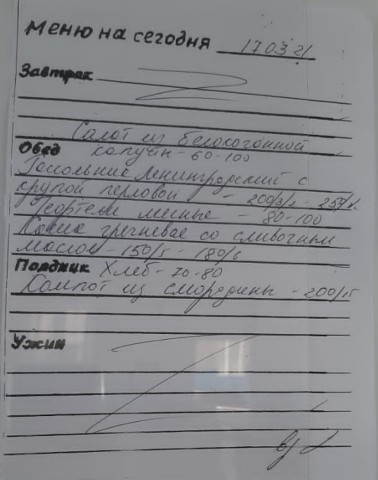 Меню на сегодня 17.03.21
Завтрак
Салат из белокочанной
Обед капусты - 60-100
Рассольник Ленинградский с
крупой перловой - 200/5/
тефтели мясные - 80-100
Каша гречневая со сливочным
маслом - 150/5 - 180/6
Полдник Хлеб - 70-80
Компот из смородины - 200/15
Ужин